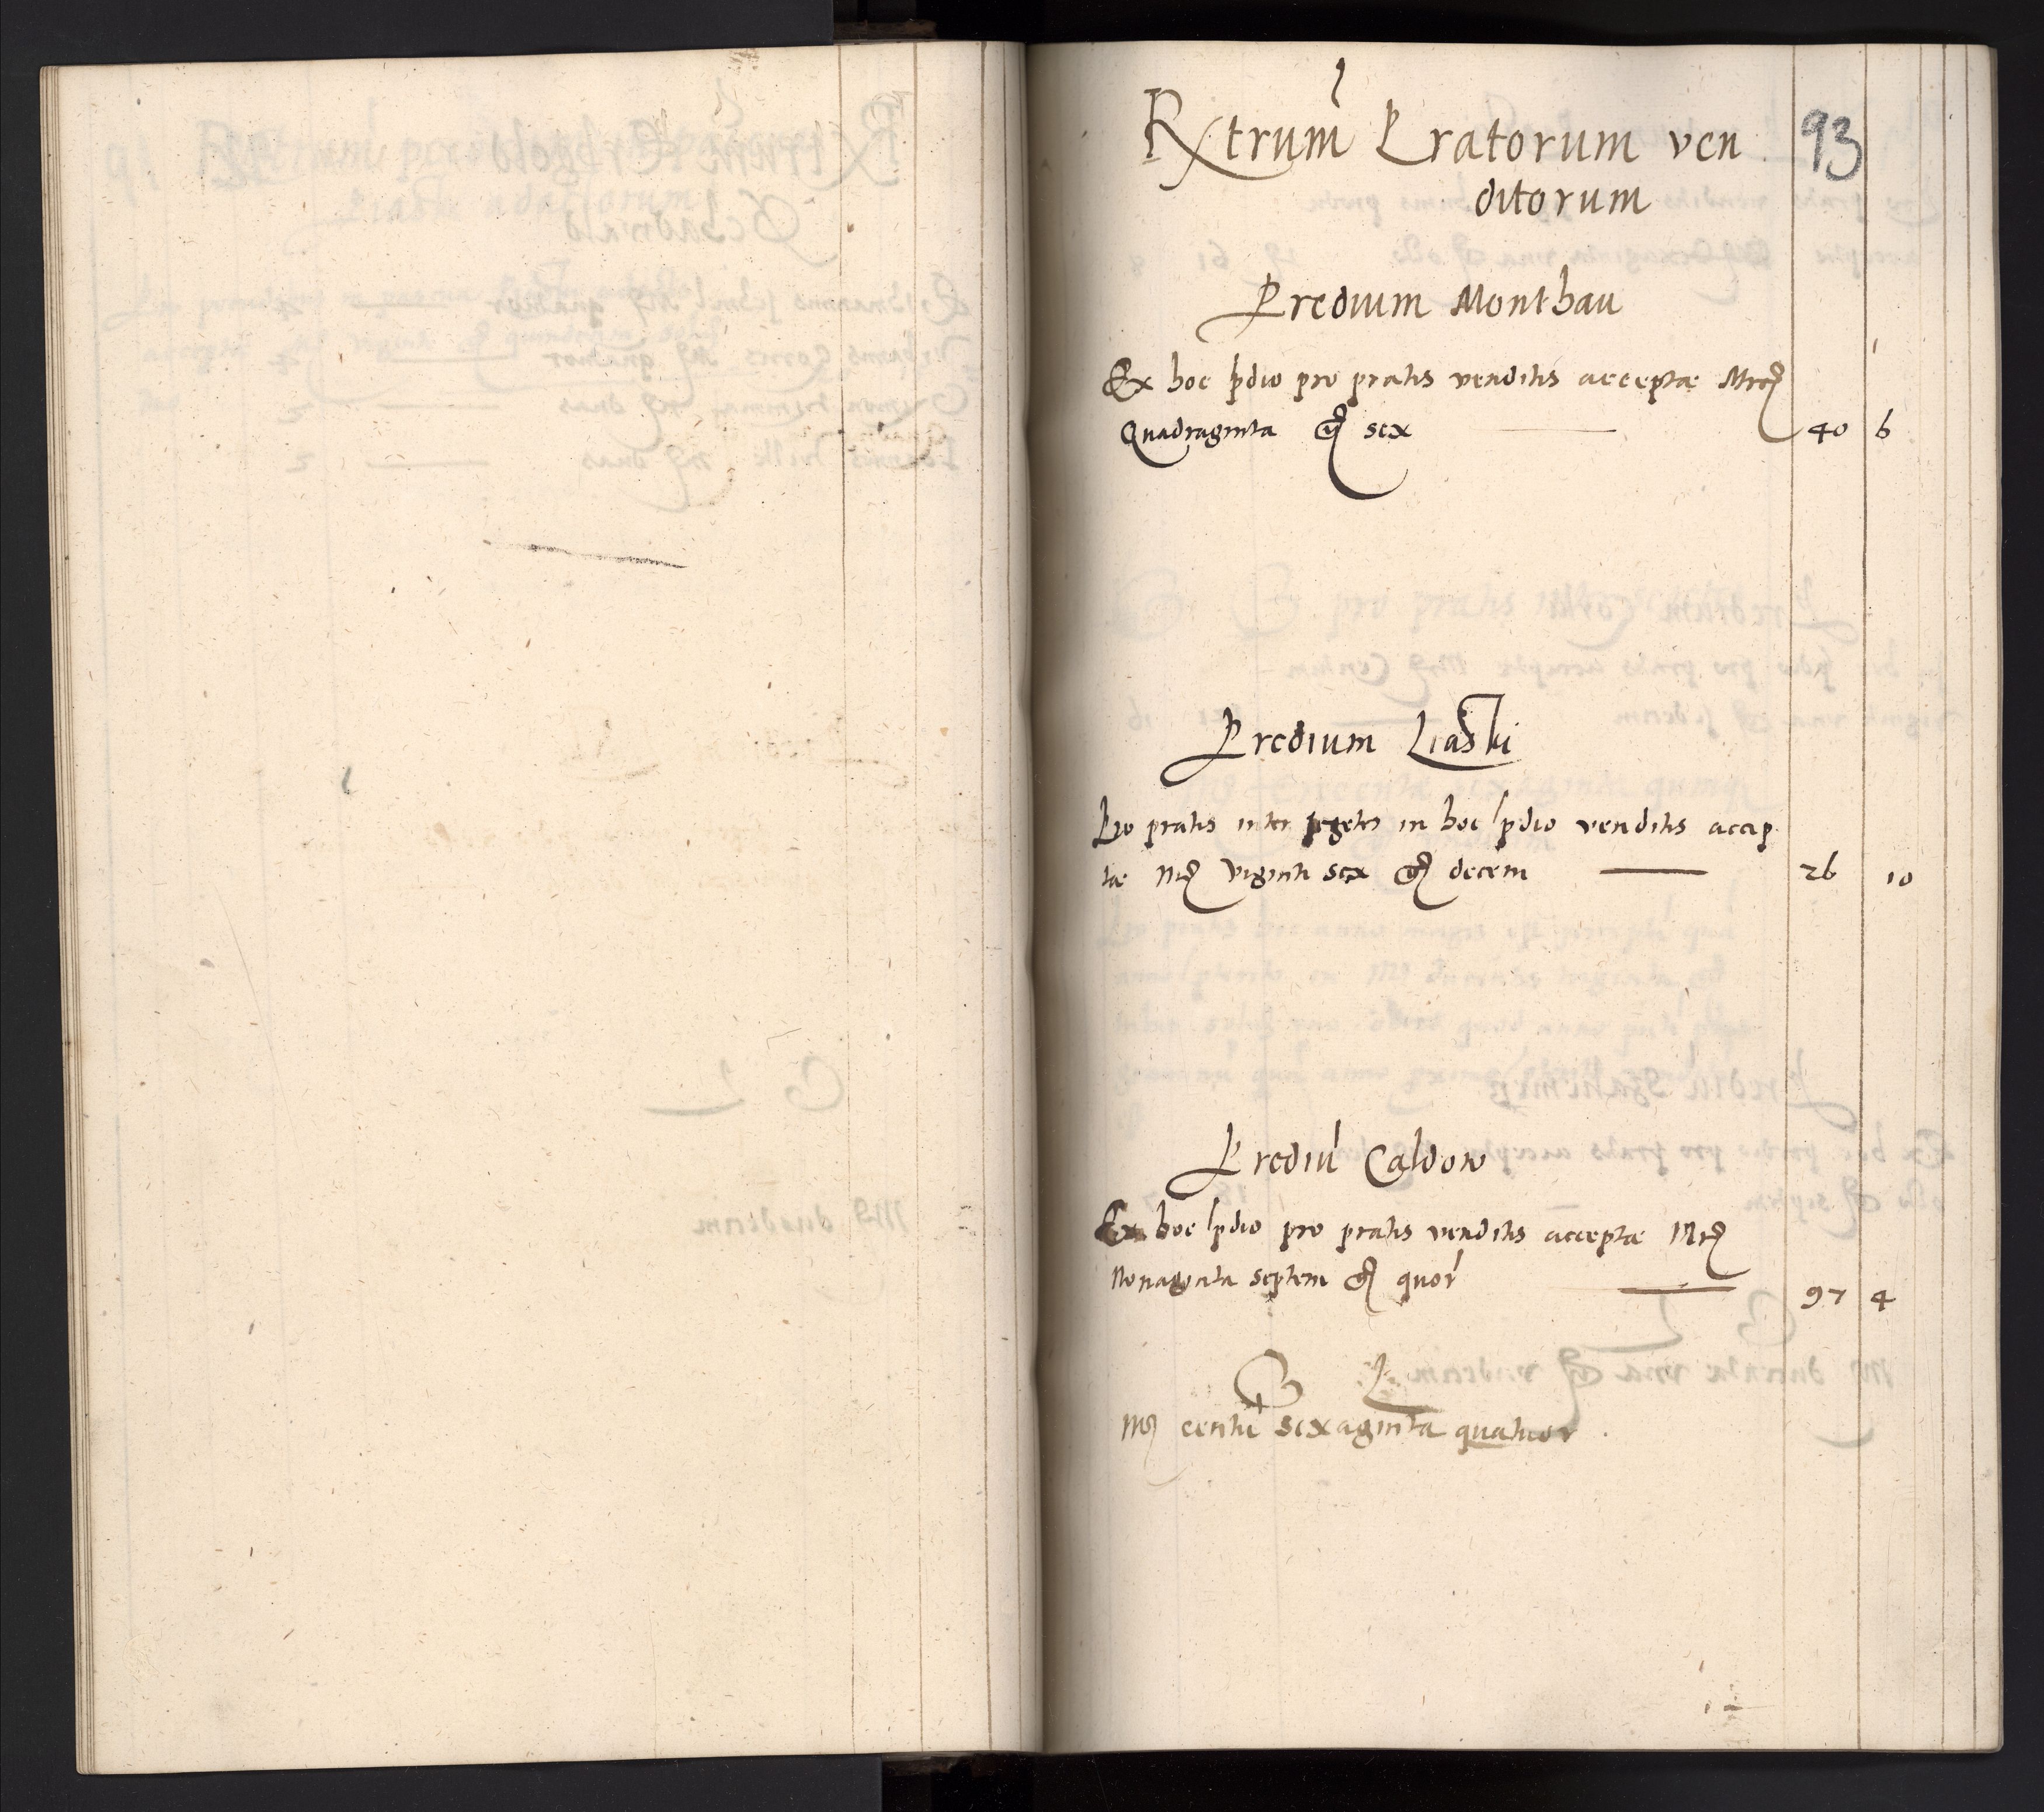 Rxtrum Pratorum ven
ditorum
93
Predium Monthau
Ex hoc pdio pro pratis venditis acceptæ Mrc
Quadraginta gr sex — 40 6
Predium Liaski
Pro pratis inter segetes in hoc pdio venditis accep
tæ Mr viginti sex gr decem — 26 10
Prediu Caldow
Ex hoc pdio pro pratis venditis acceptæ Mr
Nonaginta septem gr quor — 97 4
Mr centu sexaginta quatuor .